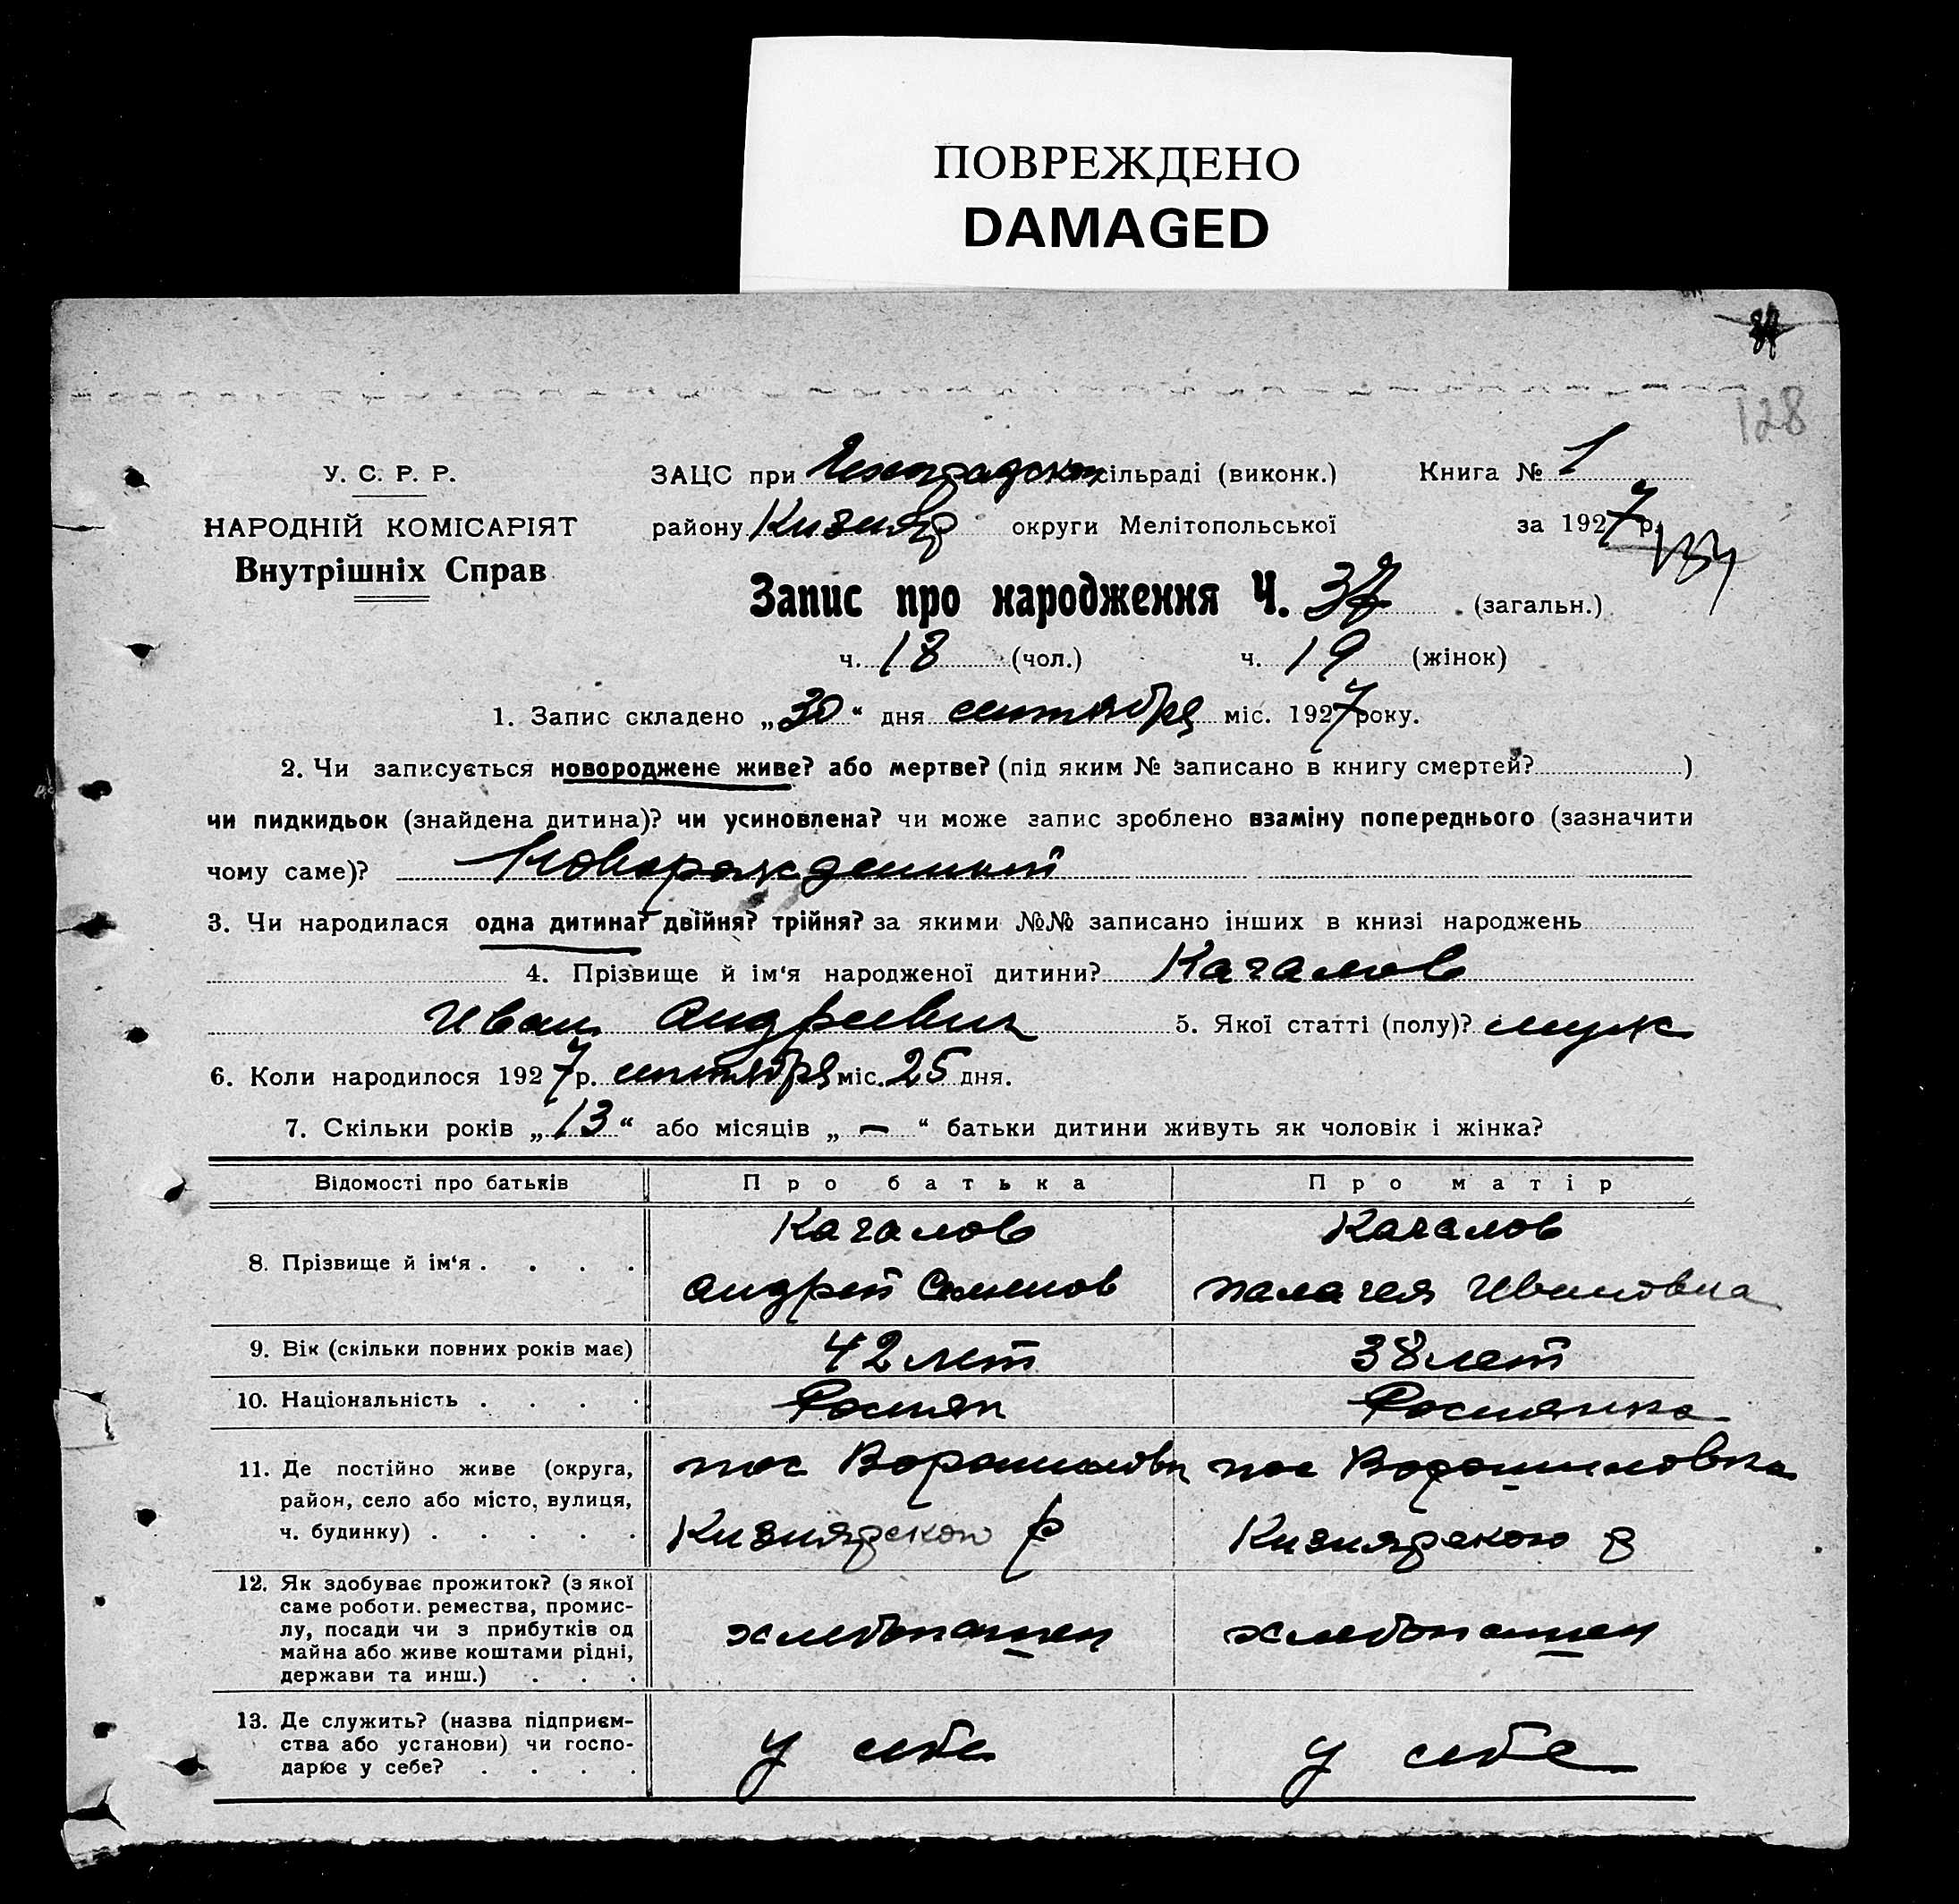 ПОВРЕЖДЕНО
DAMAGED
128
У. С. Р. Р.
НАРОДНІЙ КОМІСАРІЯТ
Внутрішніх Справ
ЗАЦС при сільраді (виконк.) Книга № 1
району Кизияр округи Мелітопольської за 1927 р.
Запис про народження Ч. 37 (загальн.)
ч. 18 (чол.) ч. 19 (жінок)
1. Запис складено „30“ дня сентября міс. 1927 року.
2. Чи записується новороджене живе? або мертве? (під яким № записано в книгу смертей? )
чи пидкидьок (знайдена дитина)? чи усиновлена? чи може запис зроблено взаміну попереднього (зазначити
чому саме)? Новорожденный
3. Чи народилася одна дитина? двійня? трійня? за якими №№ записано інших в книзі народжень
4. Прізвище й ім‘я народженої дитини? Качалов
Иван Андреевич 5. Якої статті (полу)? муж
6. Коли народилося 1927 р. сентября міс. 25 дня.
7. Скільки років „13“ або місяців „—“ батьки дитини живуть як чоловік і жінка?
Відомості про батьків Про батька Про матір
8. Прізвище й ім‘я . . . . Качалов Качалов
Андрей Семенов Палагея Ивановна
9. Вік (скільки повних років має) 42 лет 38 лет
10. Національність . . . . Росиян Росиянка
11. Де постійно живе (округа, район, село або місто, вулиця, ч. будинку) . . . . . пос Ворошиловка пос Ворошиловка
Кизиярского р Кизиярского р
12. Як здобуває прожиток? (з якої саме роботи. ремества, промислу, посади чи з прибутків од майна або живе коштами рідні, держави та инш.) . . . хлебопашец хлебопашец
13. Де служить? (назва підприємства або установи) чи господарює у себе? . . . . у себе у себе